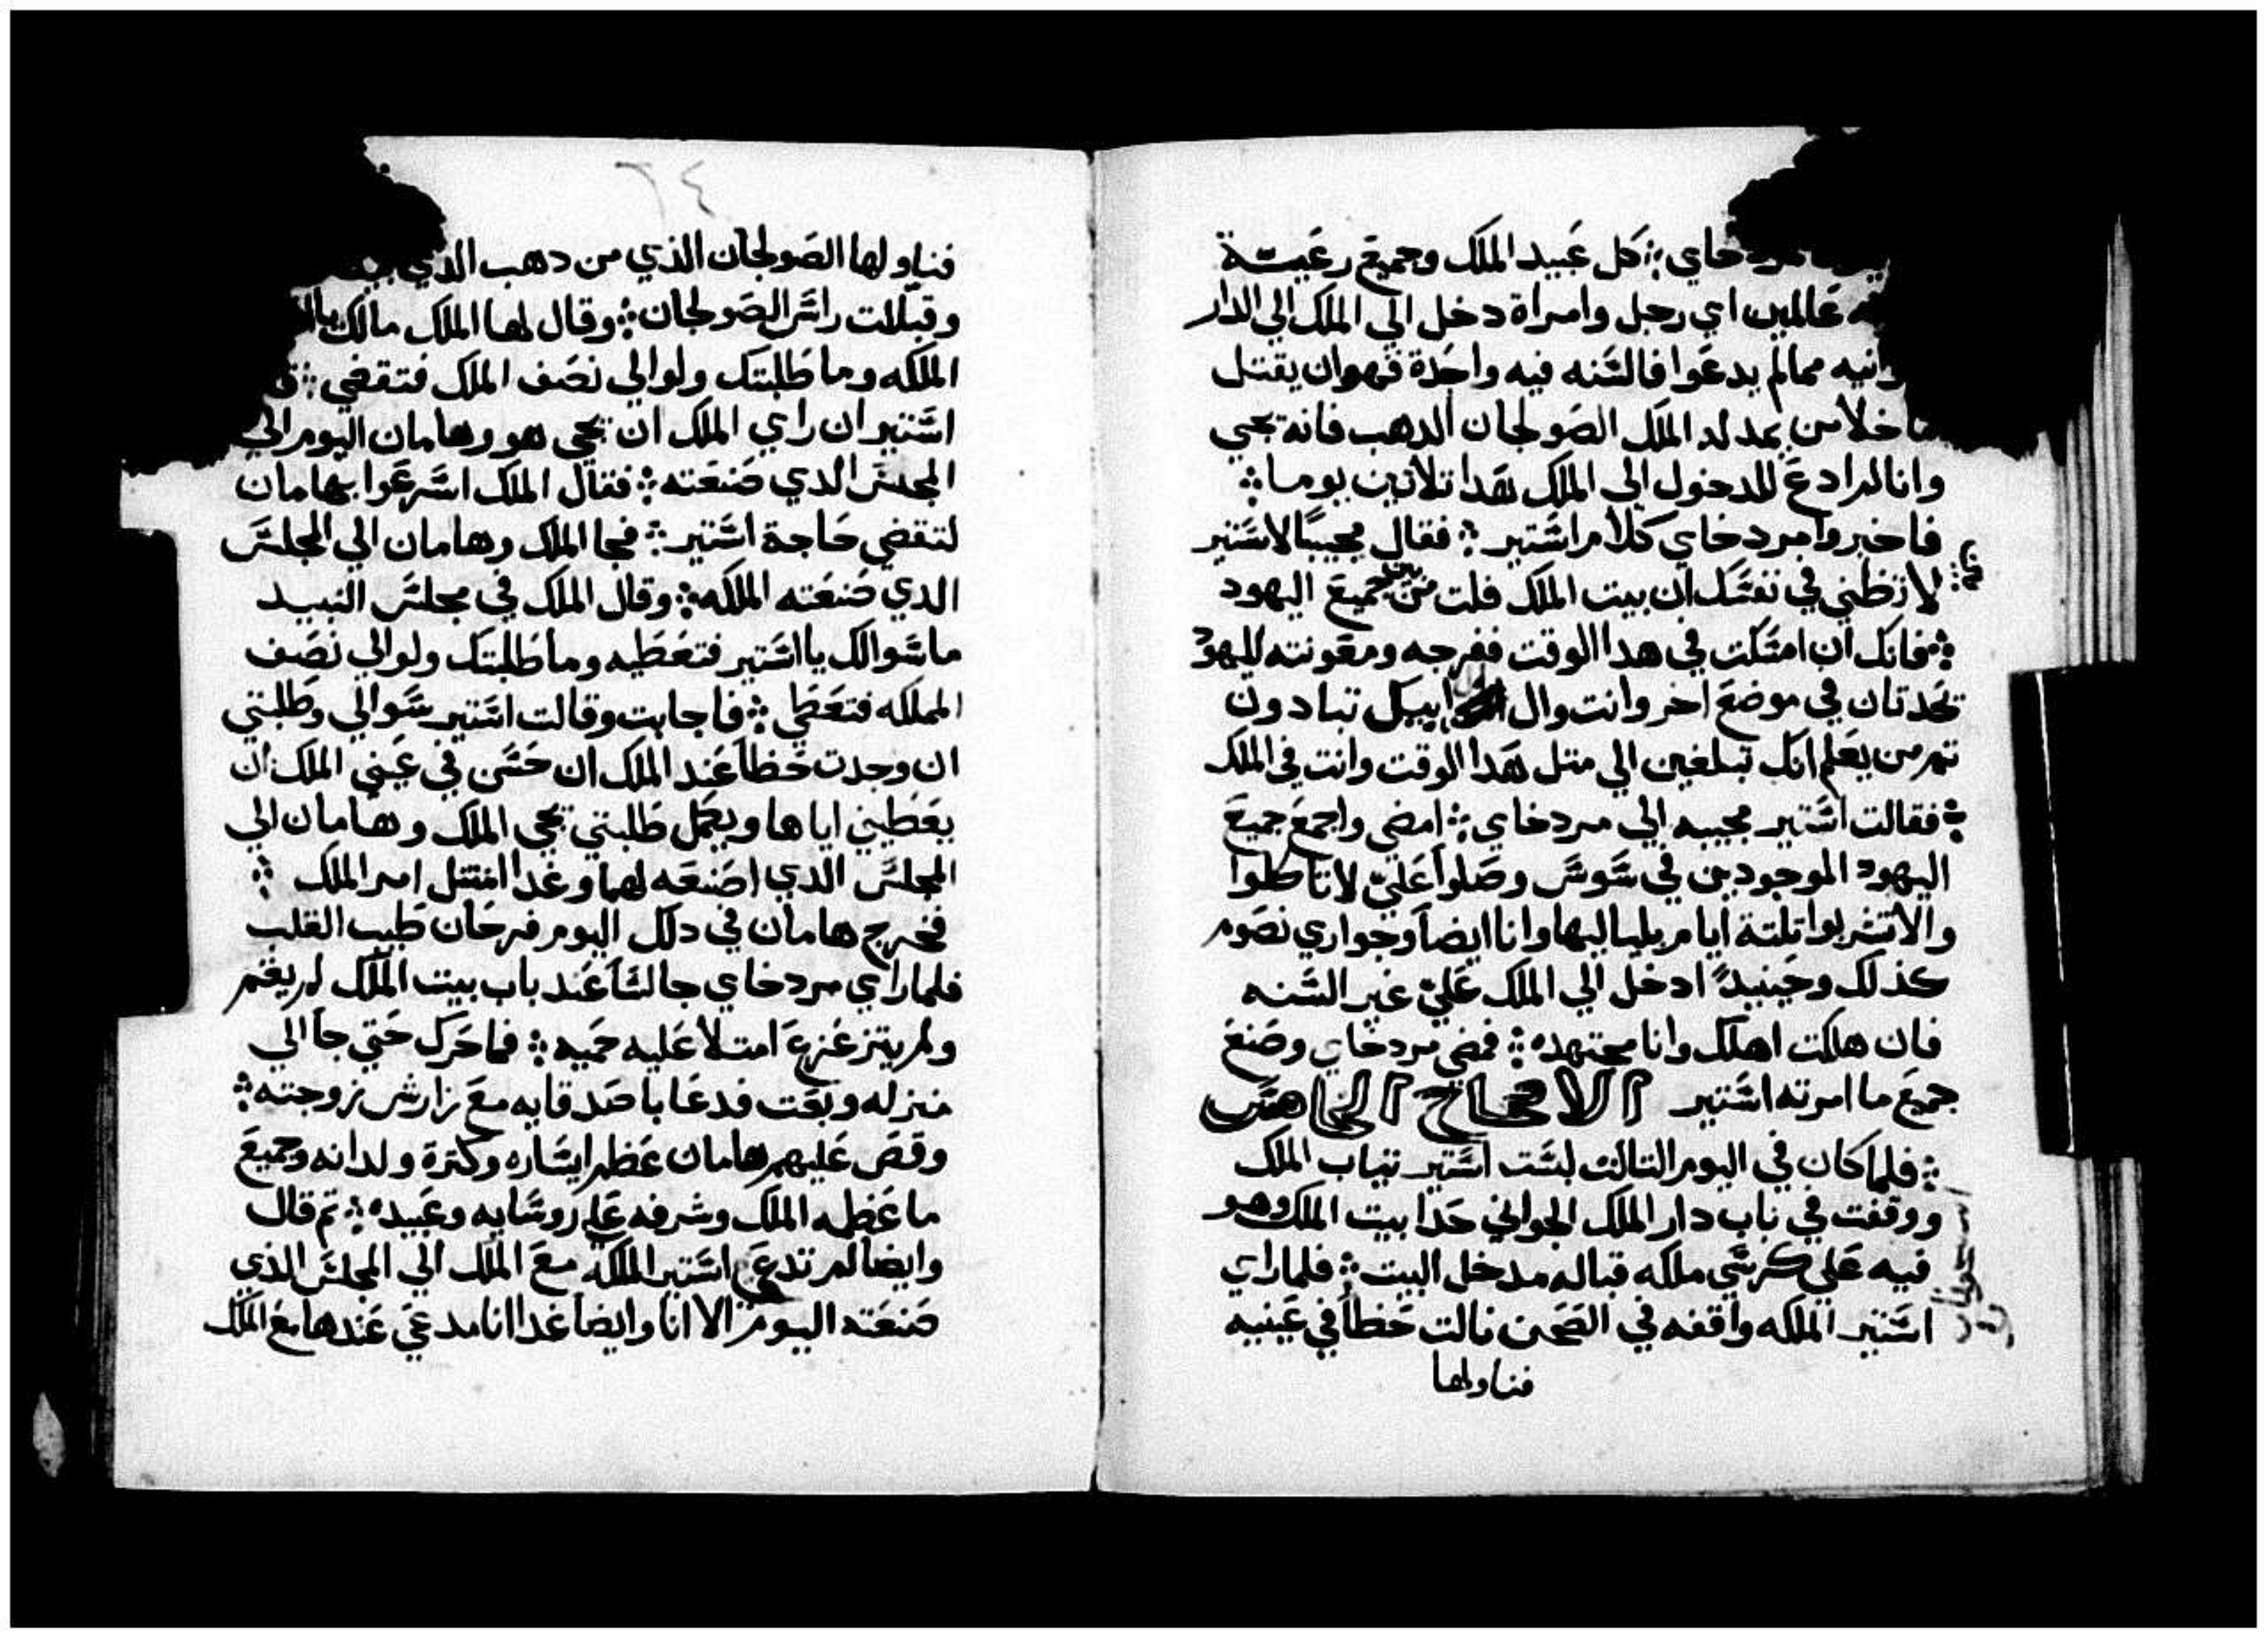 مردخاي ܀ كل عبيد الملك وجميع رعيتة
عالمين اي رجل وامراة دخل الي الملك الي الدار
مما لم يدعوا فالسنه فيه واحدة فهو ان يقتل
خلا من يمد له الملك الصولجان الدهب فانه يحيي
وانا لم ادع للدخول الي الملك هدا تلاتين يوما ܀
فاخبروا مردخاي كلام استير ܀ فقال مجيبا لاستير
لا تظني في نفسك ان بيت الملك فلت من بين جميع اليهود
܀ فانك ان امسكت في هدا الوقت ففرجه ومعونته لليهود
تحدتان في موضع اخر وانت وال ابيك تبادون
تم من يعلم انك تبلغين الي متل هدا الوقت وانت في الملك
܀ فقالت استير مجيبه الي مردخاي ܀ امضي واجمع جميع
اليهود الموجودين في سوس وصلوا علي لا تاكلوا
والا تشربوا تلتة ايام بلياليها وانا ايضا وجواري نصوم
كذلك وحينيد ادخل الي الملك علي غير السنه
فان هلكت اهلك وانا مجتهده ܀ فمضي مردخاي وصنع
جميع ما امرته استير الاصحاح الخامس
܀ فلما كان في اليوم التالت لبست استير تياب الملك
ووقفت في باب دار الملك الجواني حدا بيت الملك وهو
فيه علي كرسي ملكه قباله مدخل البيت ܀ فلما راي
استير الملكه واقفه في الصحن نالت حظا في عينيه
فناولها
٦٤
فناولها الصولجان الذي من دهب الدي
وقبلت راس الصولجان ܀ وقال لها الملك مالك يا
الملكه وما طلبتك ولو الي نصف الملك فتقضي ܀
استير ان راي الملك ان يجي هو وهامان اليوم الي
المجلس الدي صنعته ܀ فقال الملك اسرعوا بهامان
لتقضي حاجة استير ܀ فجا الملك وهامان الي المجلس
الدي صنعته الملكه ܀ وقال الملك في مجلس النبيد
ما سوالك يا استير فتعطيه وما طلبتك ولو الي نصف
المملكه فتعطي ܀ فاجابت وقالت استير سوالي وطلبتي
ان وجدت حظا عند الملك ان حسن في عيني الملك ان
يعطيني اياها ويكمل طلبتي يجي الملك وهامان الي
المجلس الدي اصنعه لهما وغدا امتتل امر الملك ܀
فخرج هامان في دلك اليوم فرحان طيب القلب
فلما راي مردخاي جالسا عند باب بيت الملك لم يقم
ولم يتزعزع امتلا عليه حميه ܀ فما حرك حتي جا الي
منزله وبعت فدعا باصدقايه مع زارش زوجته ܀
وقص عليهم هامان عظم ايساره وكترة ولدانه وجميع
ما عظمه الملك وشرفه علي روسايه وعبيده ܀ تم قال
وايضا لم تدعي استير الملكة مع الملك الي المجلس الذي
صنعته اليوم الا انا وايضا غدا انا مدعي عندها مع الملك